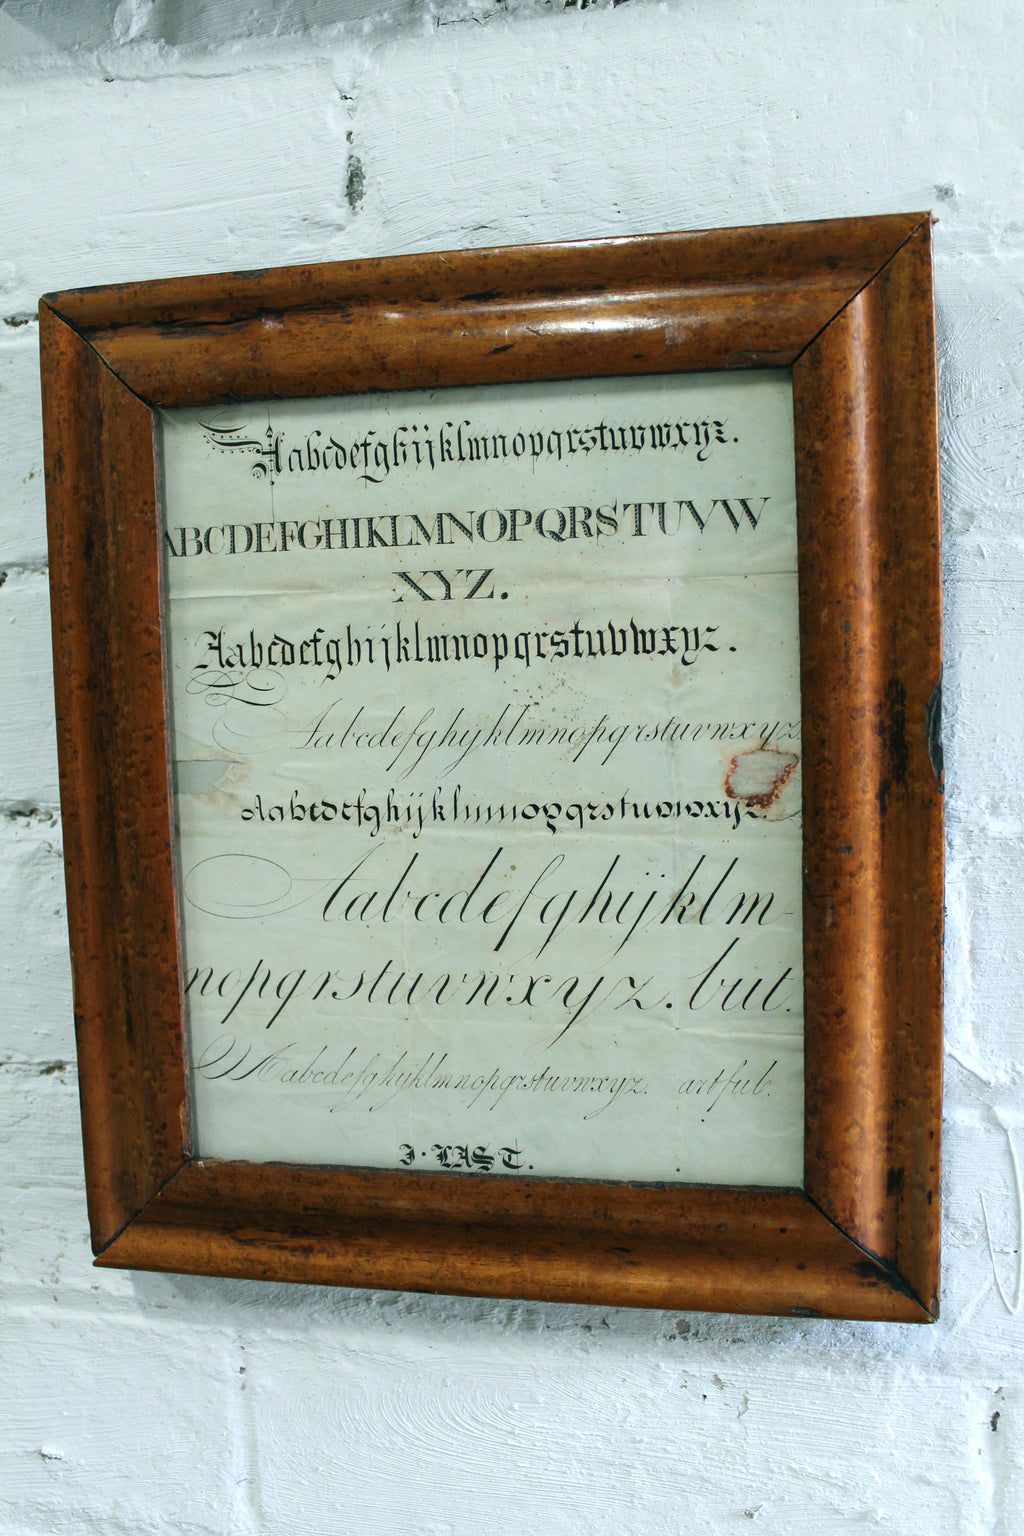 Aabcdefghijklmnopqrstuvwxyz.
ABCDEFGHIKLMNOPQRSTUVW
XYZ.
Aabcdefghijklmnopqrstuvwxyz.
Aabcdefghijklmnopqrstuvwxyz
Aabcdefghijklmnopqrstuvwxyz.
Aabcdefghijklm-
nopqrstuvwxyz. but.
Aabcdefghijklmnopqrstuvwxyz. artful.
J. LAST.